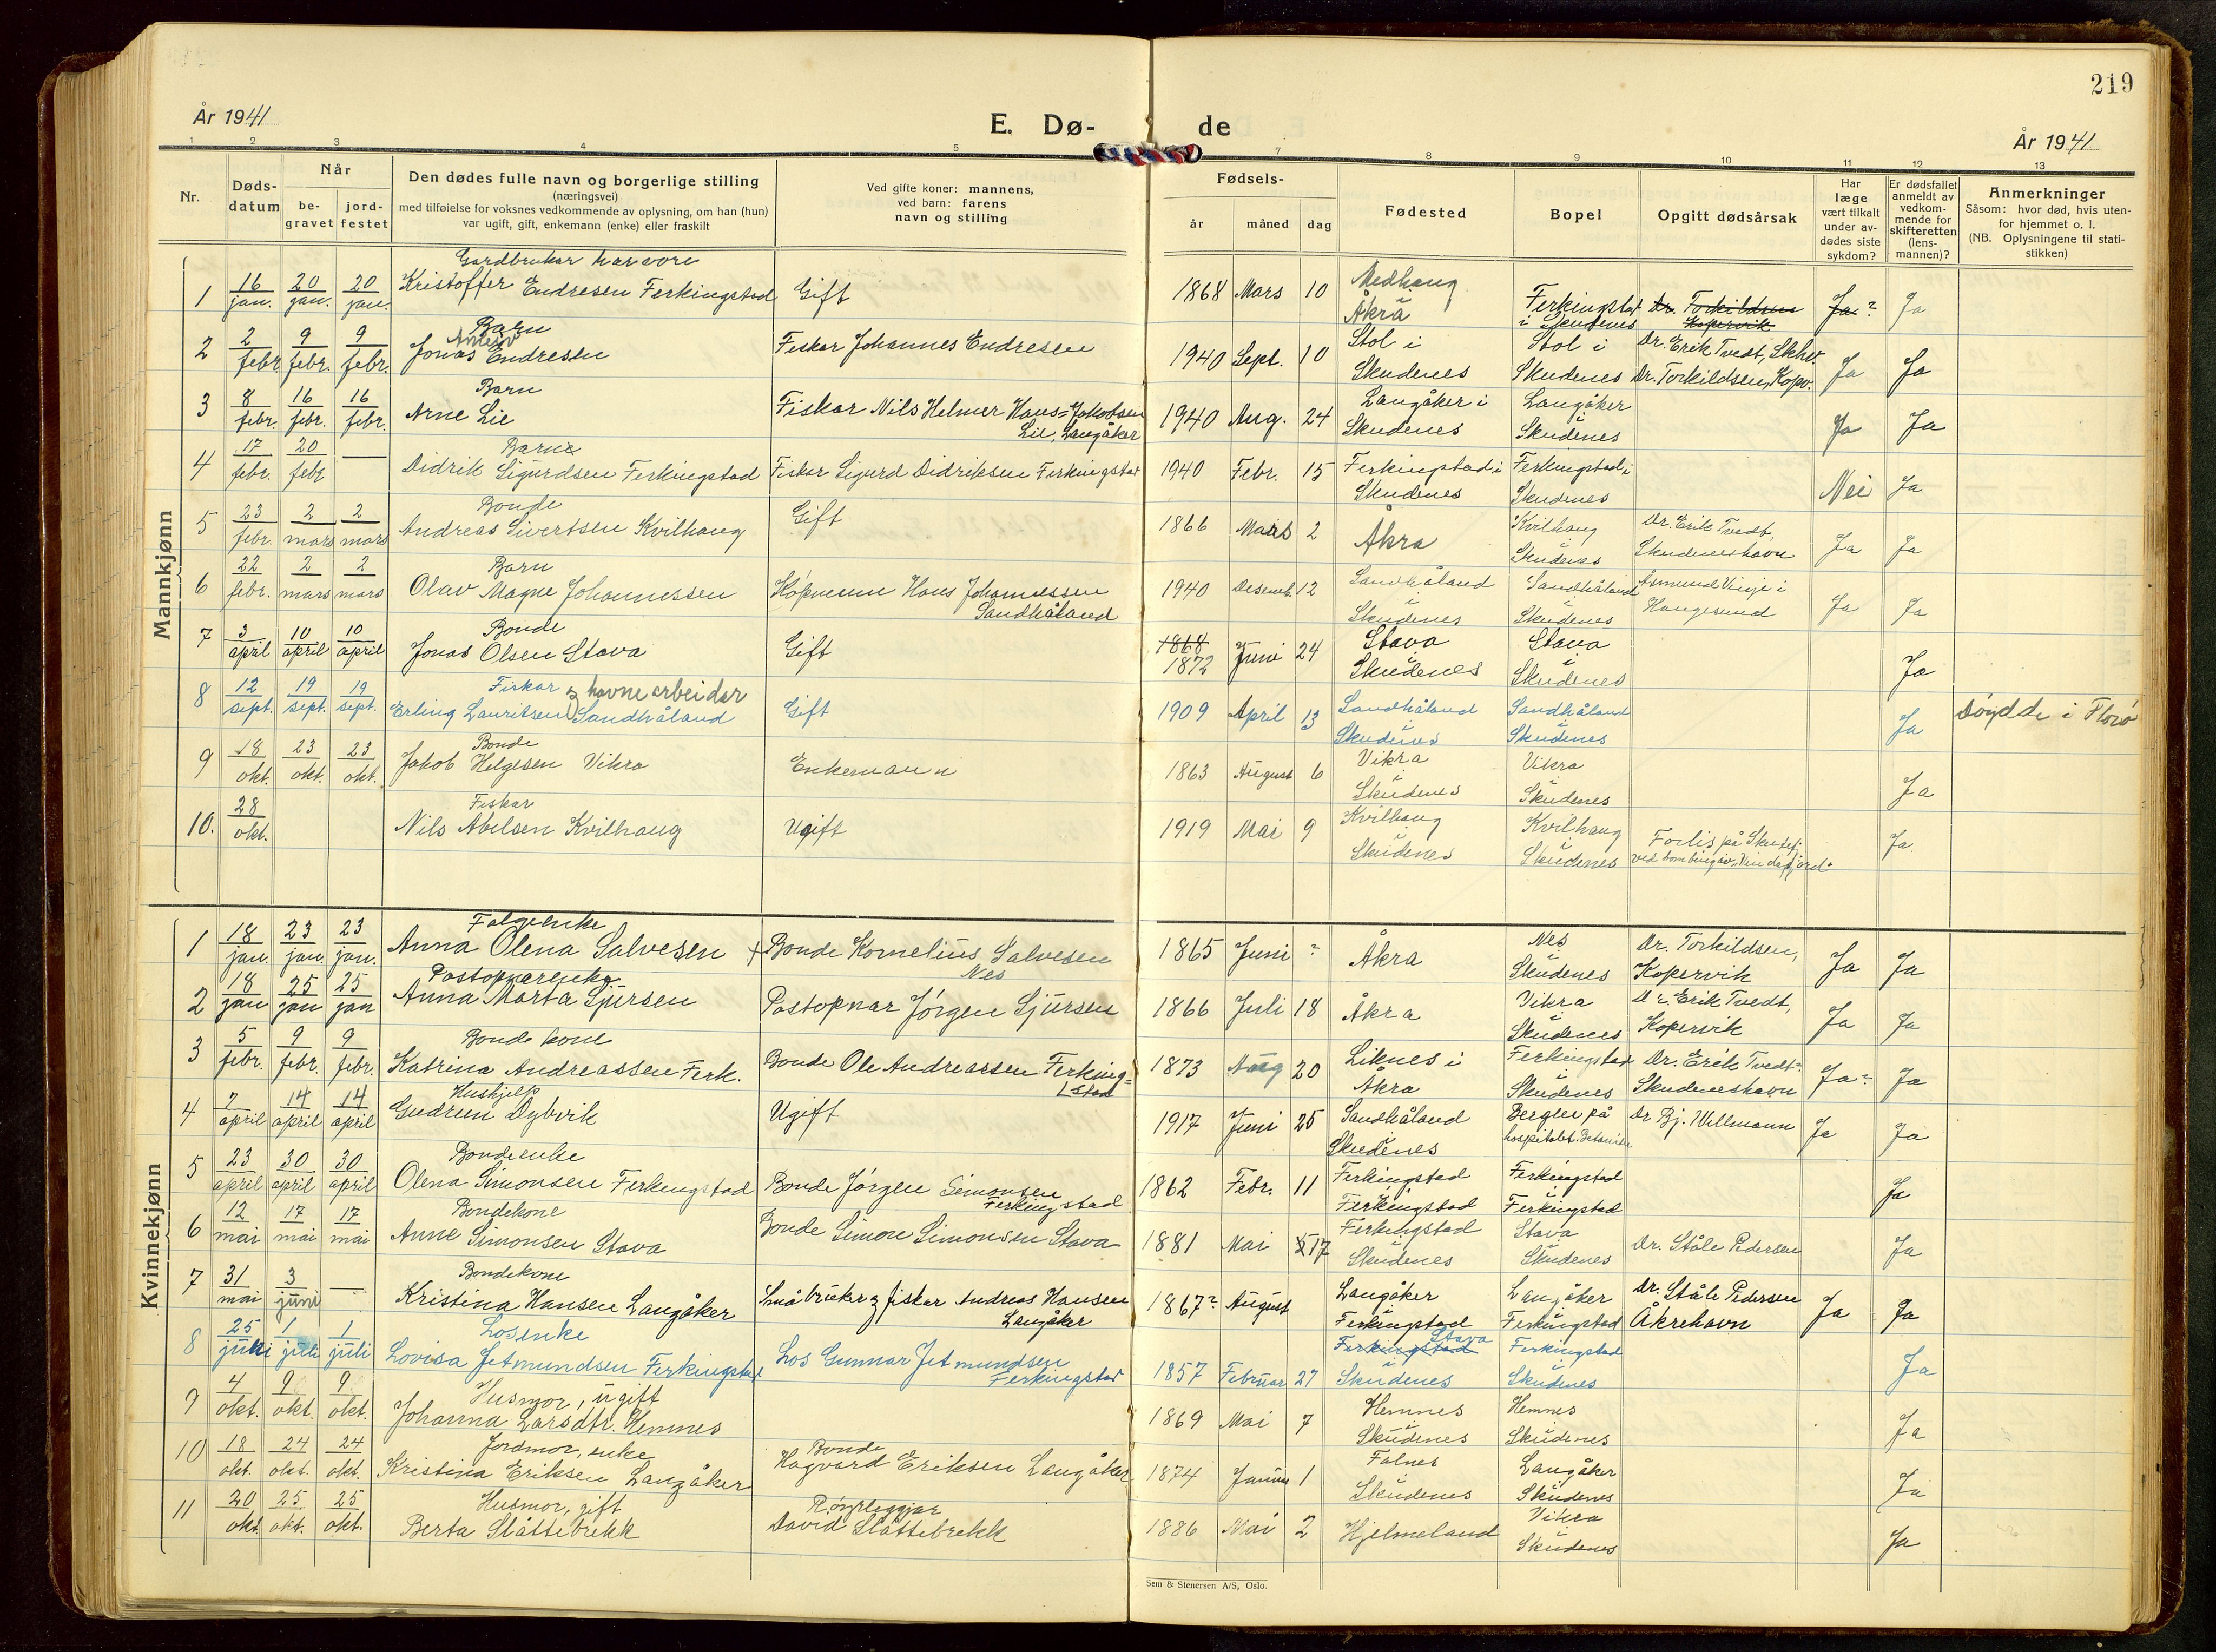 219
År 1941
E. Dø-
de
År 1941
1 2 3 4 5 7 8 9 10 11 12 13
Nr.
Døds-
datum
Når
be-
gravet
jord-
festet
Den dødes fulle navn og borgerlige stilling
(næringsvei)
med tilføielse for voksnes vedkommende av oplysning, om han (hun)
var ugift, gift, enkemann (enke) eller fraskilt
Ved gifte koner: mannens,
ved barn: farens
navn og stilling
Fødsels-
år
måned
dag
Fødested
Bopel
Opgitt dødsårsak
Har
læge
vært tilkalt
under av-
dødes siste
sykdom?
Er dødsfallet
anmeldt av
vedkom-
mende for
skifteretten
(lens-
mannen)?
Anmerkninger
Såsom: hvor død, hvis uten-
for hjemmet o. l.
(NB. Oplysningene til stati-
stikken)
Mannkjønn
Gardbrukar
1 16 jan. 20 jan. 20 jan. Kristoffer Endresen Ferkingstad Gift 1868 Mars 10 Medhaug
Åkra Ferkingstad i Skudenes Dr. Torkildsen Kopervik Ja? Ja
Barn
2 2 febr. 9 febr. 9 febr. Jonas Endresen Fiskar Johannes Endresen 1940 Sept. 10 Stol i
Skudenes Stol i Skudenes Dr. Erik Tvedt, Skhv.
Dr. Torkildsen, Kopv. Ja Ja
Barn
3 8 febr. 16 febr. 16 febr. Arne Lie Fiskar Nils Helmer Hans=Jakobsen
Lie, Langåker 1940 Aug. 24 Langåker i
Skudenes Langåker i Skudenes Ja Ja
Barn
4 17 febr. 20 febr — Didrik Sigurdsen Ferkingstad Fiskar Sigurd Didriksen Ferkingstad 1940 Febr. 15 Ferkingstad i
Skudenes Ferkingstad i Skudenes Nei Ja
Bonde
5 23 febr. 2 mars 2 mars Andreas Sivertsen Kvilhaug Gift 1866 Mars 2 Åkra Kvilhaug i Skudenes Dr. Erik Tvedt,
Skudeneshavn Ja Ja
Barn
6 22 febr. 2 mars 2 mars Olav Magne Johannessen Kópmann Hans Johannessen
Sandhåland 1940 Desemb. 12 Sandhåland
i Skudenes Sandhåland i Skudenes Åsmund Vinje i
Haugesund Ja Ja
Bonde
7 3 april 10 april 10 april Jonas Olsen Stava Gift 1868 1872 Juni 24 Stava
i Skudenes Stava i Skudenes Ja
Fiskar og havnearbeider
8 12 sept. 19 sept. 19 sept. Erling Lauritsen Sandhåland Gift 1909 April 13 Sandhåland
i Skudenes Sandhåland i Skudenes Ja Døydde i Florø
Bonde
9 18 okt. 23 okt. 23 okt. Jakob Helgesen Vikra Enkemann 1863 August 6 Vikra
i Skudenes Vikra i Skudenes Ja
Fiskar
10. 28 okt. Nils Abelsen Kvilhaug Ugift 1919 Mai 9 Kvilhaug
i Skudenes Kvilhaug i Skudenes Forlis på
ved bombing av "Vindafjord" Ja.
Kvinnekjønn
1 18 jan. 23 jan. 23 jan. Anna Olena Salvesen Bonde Kornelius Salvesen
Nes 1865 Juni ? Åkra Nes
Skudenes Dr. Torkildsen,
Kopervik Ja Ja
Postopnarenke
2 18 jan 25 jan 25 jan Anna Marta Sjursen Postopnar Jørgen Sjursen 1866 Juli 18 Åkra Vikra
i Skudenes Dr. Erik Tvedt,
Kopervik Ja Ja
Bonde kone
3 5 febr. 9 febr. 9 febr. Katrina Andreassen Ferk. Bonde Ole Andreassen Ferking=
stad 1873 Aug 20 Liknes i
Åkra Ferkingstad
i Skudenes Dr. Erik Tvedt
Skudeneshavn Ja Ja
Hushjelp
4 7 april 14 april 14 april Gudrun Dybvik Ugift 1917 Juni 25 Sandhåland
i Skudenes Bergen på
hospitalet Dr Bj. Willmann Ja Ja
Bondeenke
5 23 april 30 april 30 april Olena Simonsen Ferkingstad Bonde Jørgen Simonsen
Ferkingstad 1862 Febr. 11 Ferkingstad
Ferkingstad Ferkingstad
Ferkingstad Ja
Bondekone
6 12 mai 17 mai 17 mai Anne Simonsen Stava Bonde Simon Simonsen Stava 1881 Mai 17 Ferkingstad
Skudenes Stava
i Skudenes Dr. Ståle Pedersen Ja
Bondekone
7 31 mai 3 juni — Kristina Hansen Langåker Småbruker og fisker Andreas Hansen
Langåker 1867? August Langåker
Ferkingstad Langåker
Ferkingstad Dr. Ståle Pedersen
Åkrehavn Ja Ja
Losenke
8 25 juni 1 juli 1 juli Lovisa Jetmundsen Ferkingstad Los Gunnar Jetmundsen
Ferkingstad 1857 Februar 27 Ferkingstad Stava
Skudenes Ferkingstad
i Skudenes Ja
Husmor, ugift
9 4 okt. 9 okt. 9 okt. Johanna Larsdtr. Hemnes 1869 Mai 7 Hemnes
i Skudenes Hemnes
i Skudenes Ja
Jordmor, enke Bonde
10 18 okt. 24 okt. 24 okt. Kristina Eriksen Langåker Hagvard Eriksen Langåker 1874 Januar 1 Falnes
i Skudenes Langåker
i Skudenes Ja
Husmor, gift Røyrleggjar
11 20 okt. 25 okt. 25 okt. Berta Slåttebrekk David Slåttebrekk 1886 Mai 2 Hjelmeland Vikra
i Skudenes Ja
Sem & Stenersen A/S, Oslo.